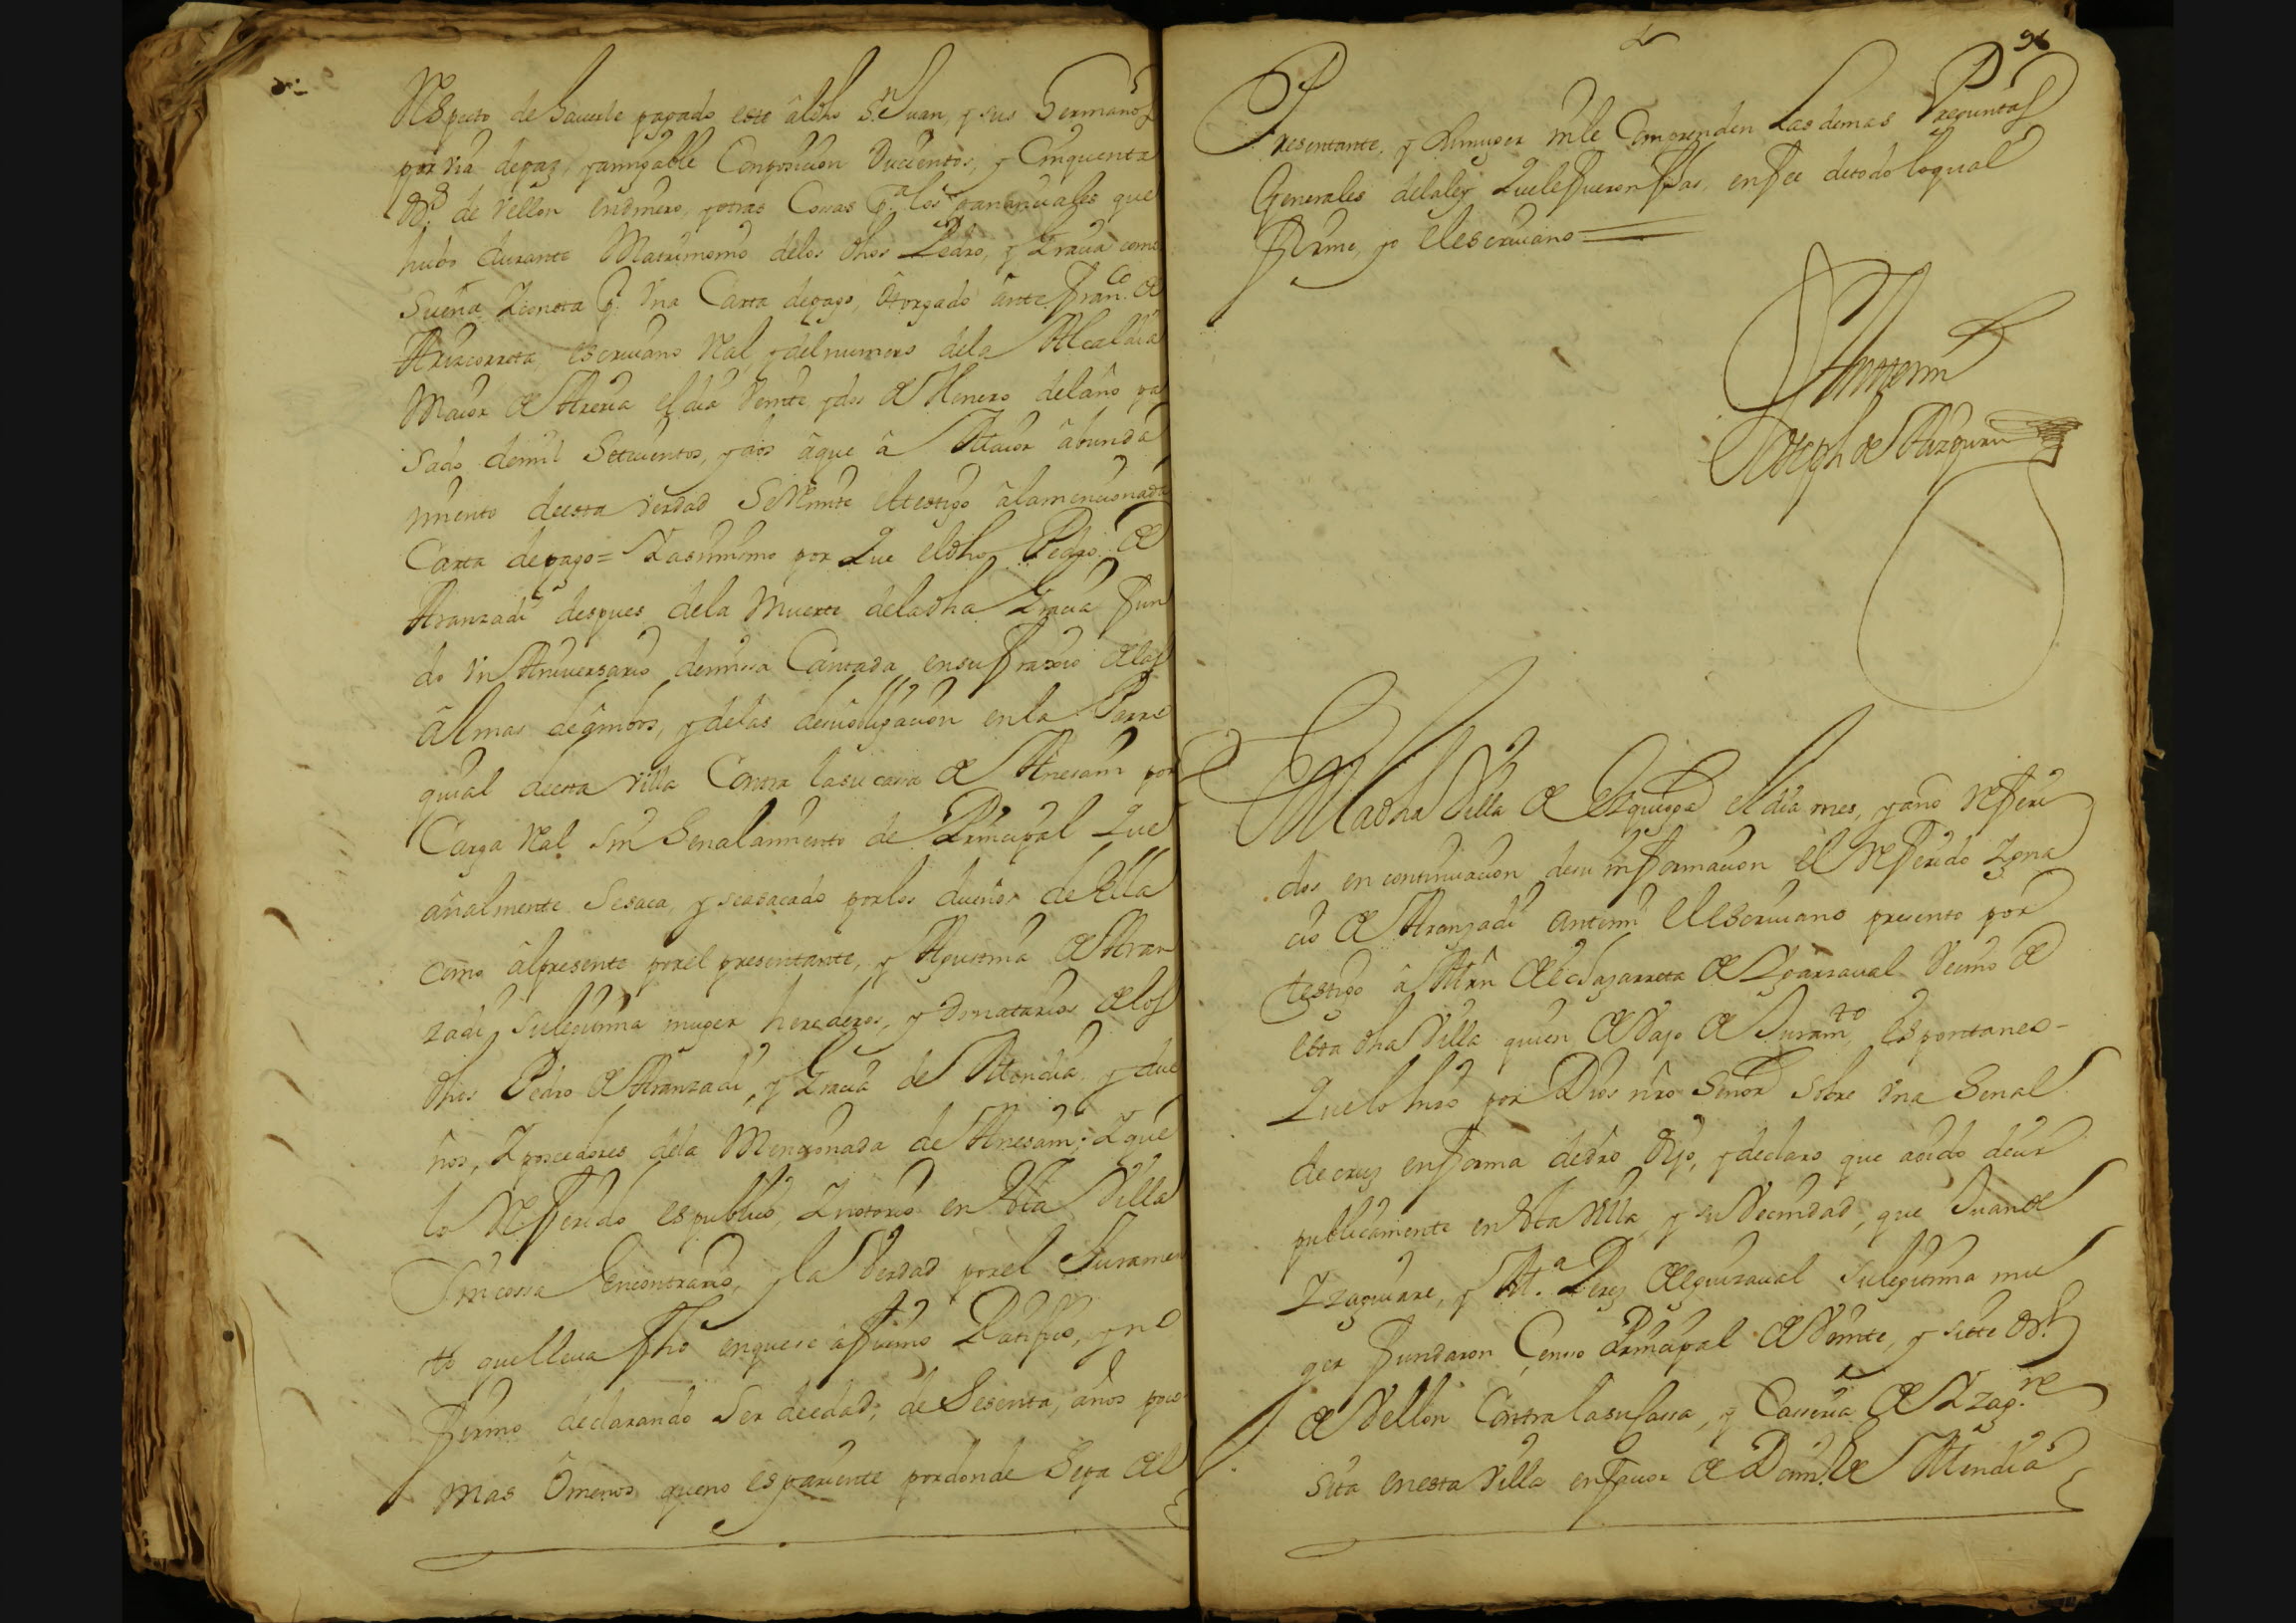 Respecto de haverle pagado este âldho Sn. Juan, y sus Hermanos
por via depaz, yamigable Composicion Ducientos, y Cinquenta
Ds. de vellon endinero, yotras Cossas pa. los gananciales que
hubo durante Matrimonio delos dhos Pedro, y Gracia como
Suena Zconsta pr. Vna Carta depago, ôtorgado ânte Franco. de
escrivano Real, ydelnumero dela Alcaldia
Maior de Areria el dia Veinte ydos de Henero delaño pa
sado demil Setecientos, ydos âque â Maior âbunda
miento deesta verdad Se Remite eltestigo âlamencionada
Carta depago= Yasimismo por Que eldho Pedro de
Aranzadi despues dela Muerte deladha Gracia fun
do Vn Aniversario demissa Cantada ensufraxio delas
âlmas deâmbos, ydelas desuôbligacion enla Parro
quial deesta villa Contra lasu casa de Anesani por
Carga Real Sin Senalamiento de Principal Que
añalmente Sesaca, yseasacado porlos dueños de Ella
como âlpresente porel presentante, y Agustina de Aran
zadi, sulegitima muger herederos, y Donatarios delos
dhos Pedro de Aranzadi, y Gracia de Mendia, y due
ños, Zposeedores dela Mencionada de Anesani; Zque
lo Referido espublico, Znotorio en Esta Villa
Sincossa Encontrario, y la Verdad porel Juramen
to quelleva fho enquese âfirmo Ratifico, yno
firmo declarando Ser deedad, de Sesenta, años poco
mas ômenos queno espariente pordonde Sepa del
96
Presentante, y Sumuger nile Comprenden Lasdemas Preguntas
Generales delaley Quelefueron fhas, enfee detodo loqual
firme, yo elescrivano
Antemi
Joseph de Aizpuru
Enladha Villa de Ezquioga el dia mes, yaño Referi
dos en continuacion desu informacion el Referido Igna
cio de Aranzadi antemi el Escrivano presento por
testigo â Mrn de Vecino de
esta dha Villa quien debajo de Juramto. Espontaneo-
Quelo hizo por Dios nro Señor Sobre Vna Senal
decruz enforma dedro Dijo, ydeclaro que âoido decir
publicamente en Esta Villa, y su Vecindad, que Juan de
Yzaguirre, y Ma. Perez deeguizaval Sulegitima mu
ger fundaron Censo Principal de Veinte, y siete Ds.
de Vellon Contra lasuCassa, y Caseria de Yzagre.
Sita enesta Villa enfavor de Domo. de Mendia